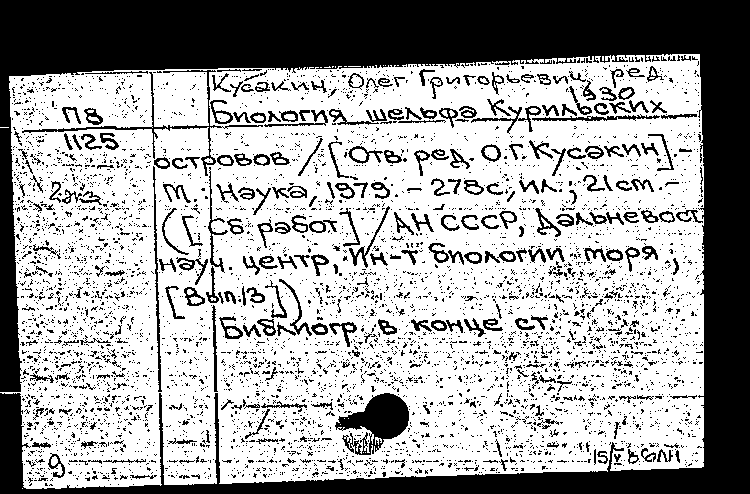 Кусакин, Олег Григорьевич, ред.
1930
П8
1125
Биология шельфа Курильских
островов / [Отв. ред. О.Г. Кусакин]. –
2экз
М.: Наука, 1979. – 278с., ил.; 21см. –
([Сб. работ] / АН СССР, Дальневост.
науч. центр, Ин-т биологии моря;
[Вып.13])
Библиогр. в конце ст.
9